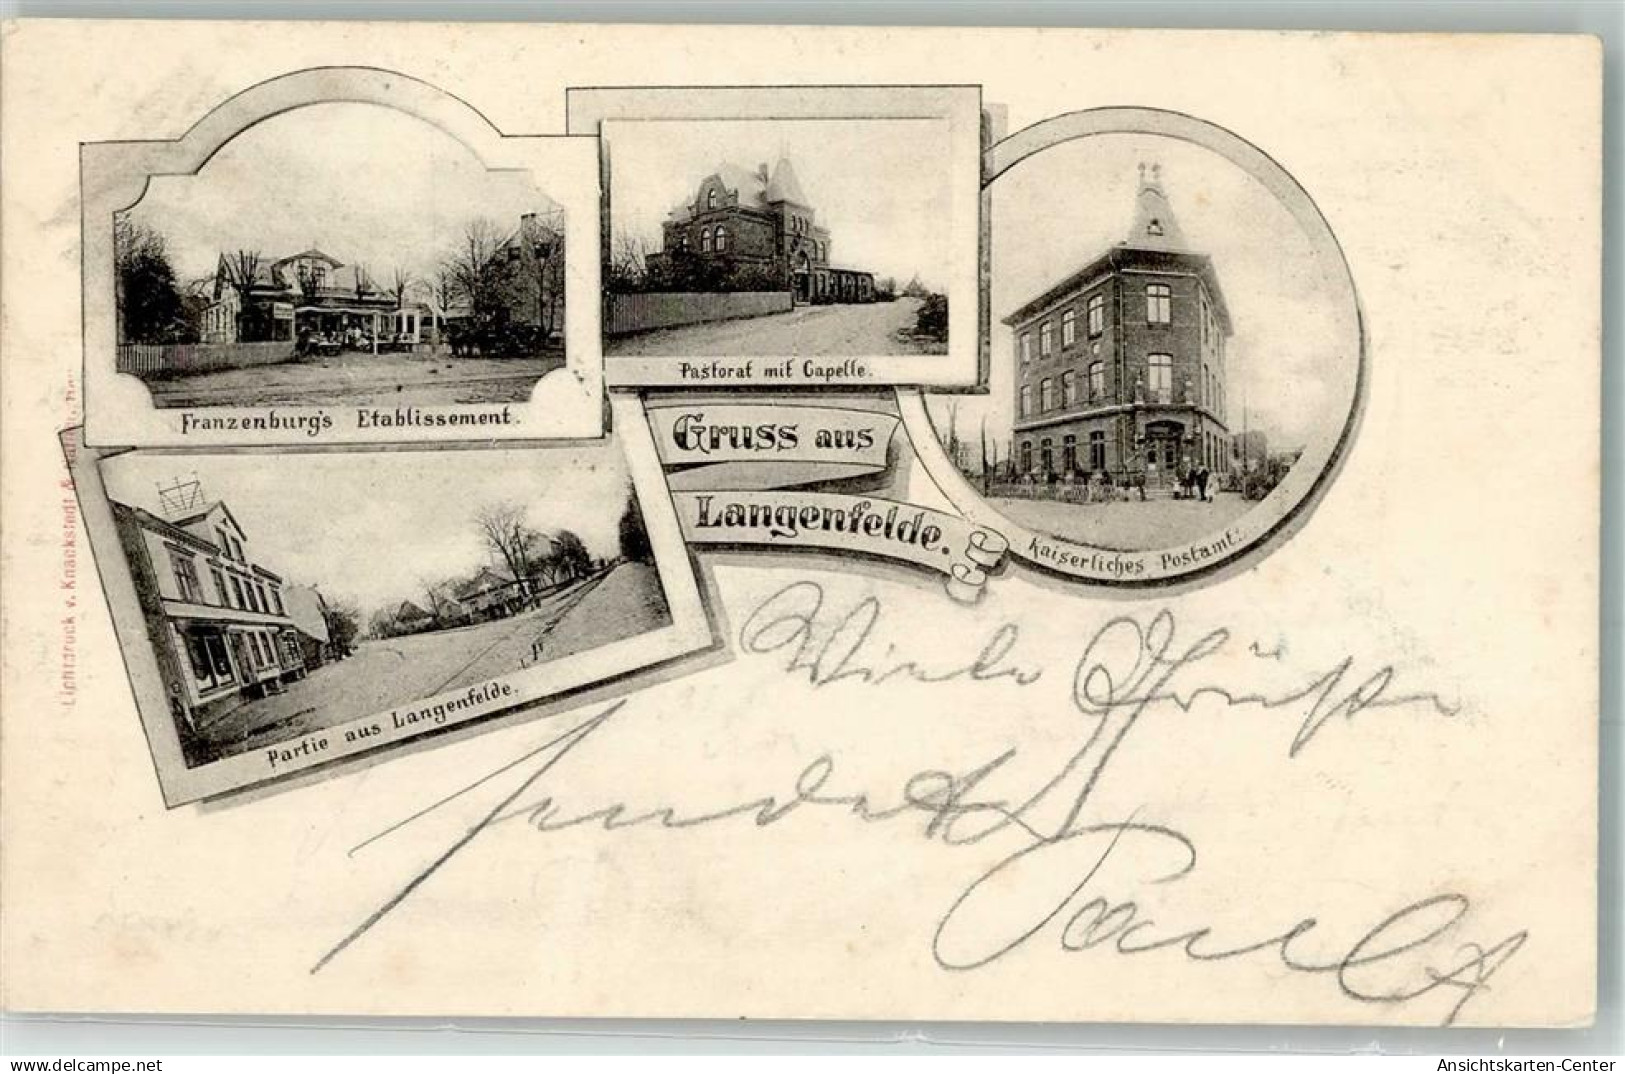 Franzenburg's Etablissement.
Pastorat mit Capelle.
Kaiserliches Postamt.
Gruss aus
Langenfelde.
Partie aus Langenfelde.
Lichtdruck v. Knackstedt &
Viele Grüße
sendet
Ansichtskarten-Center